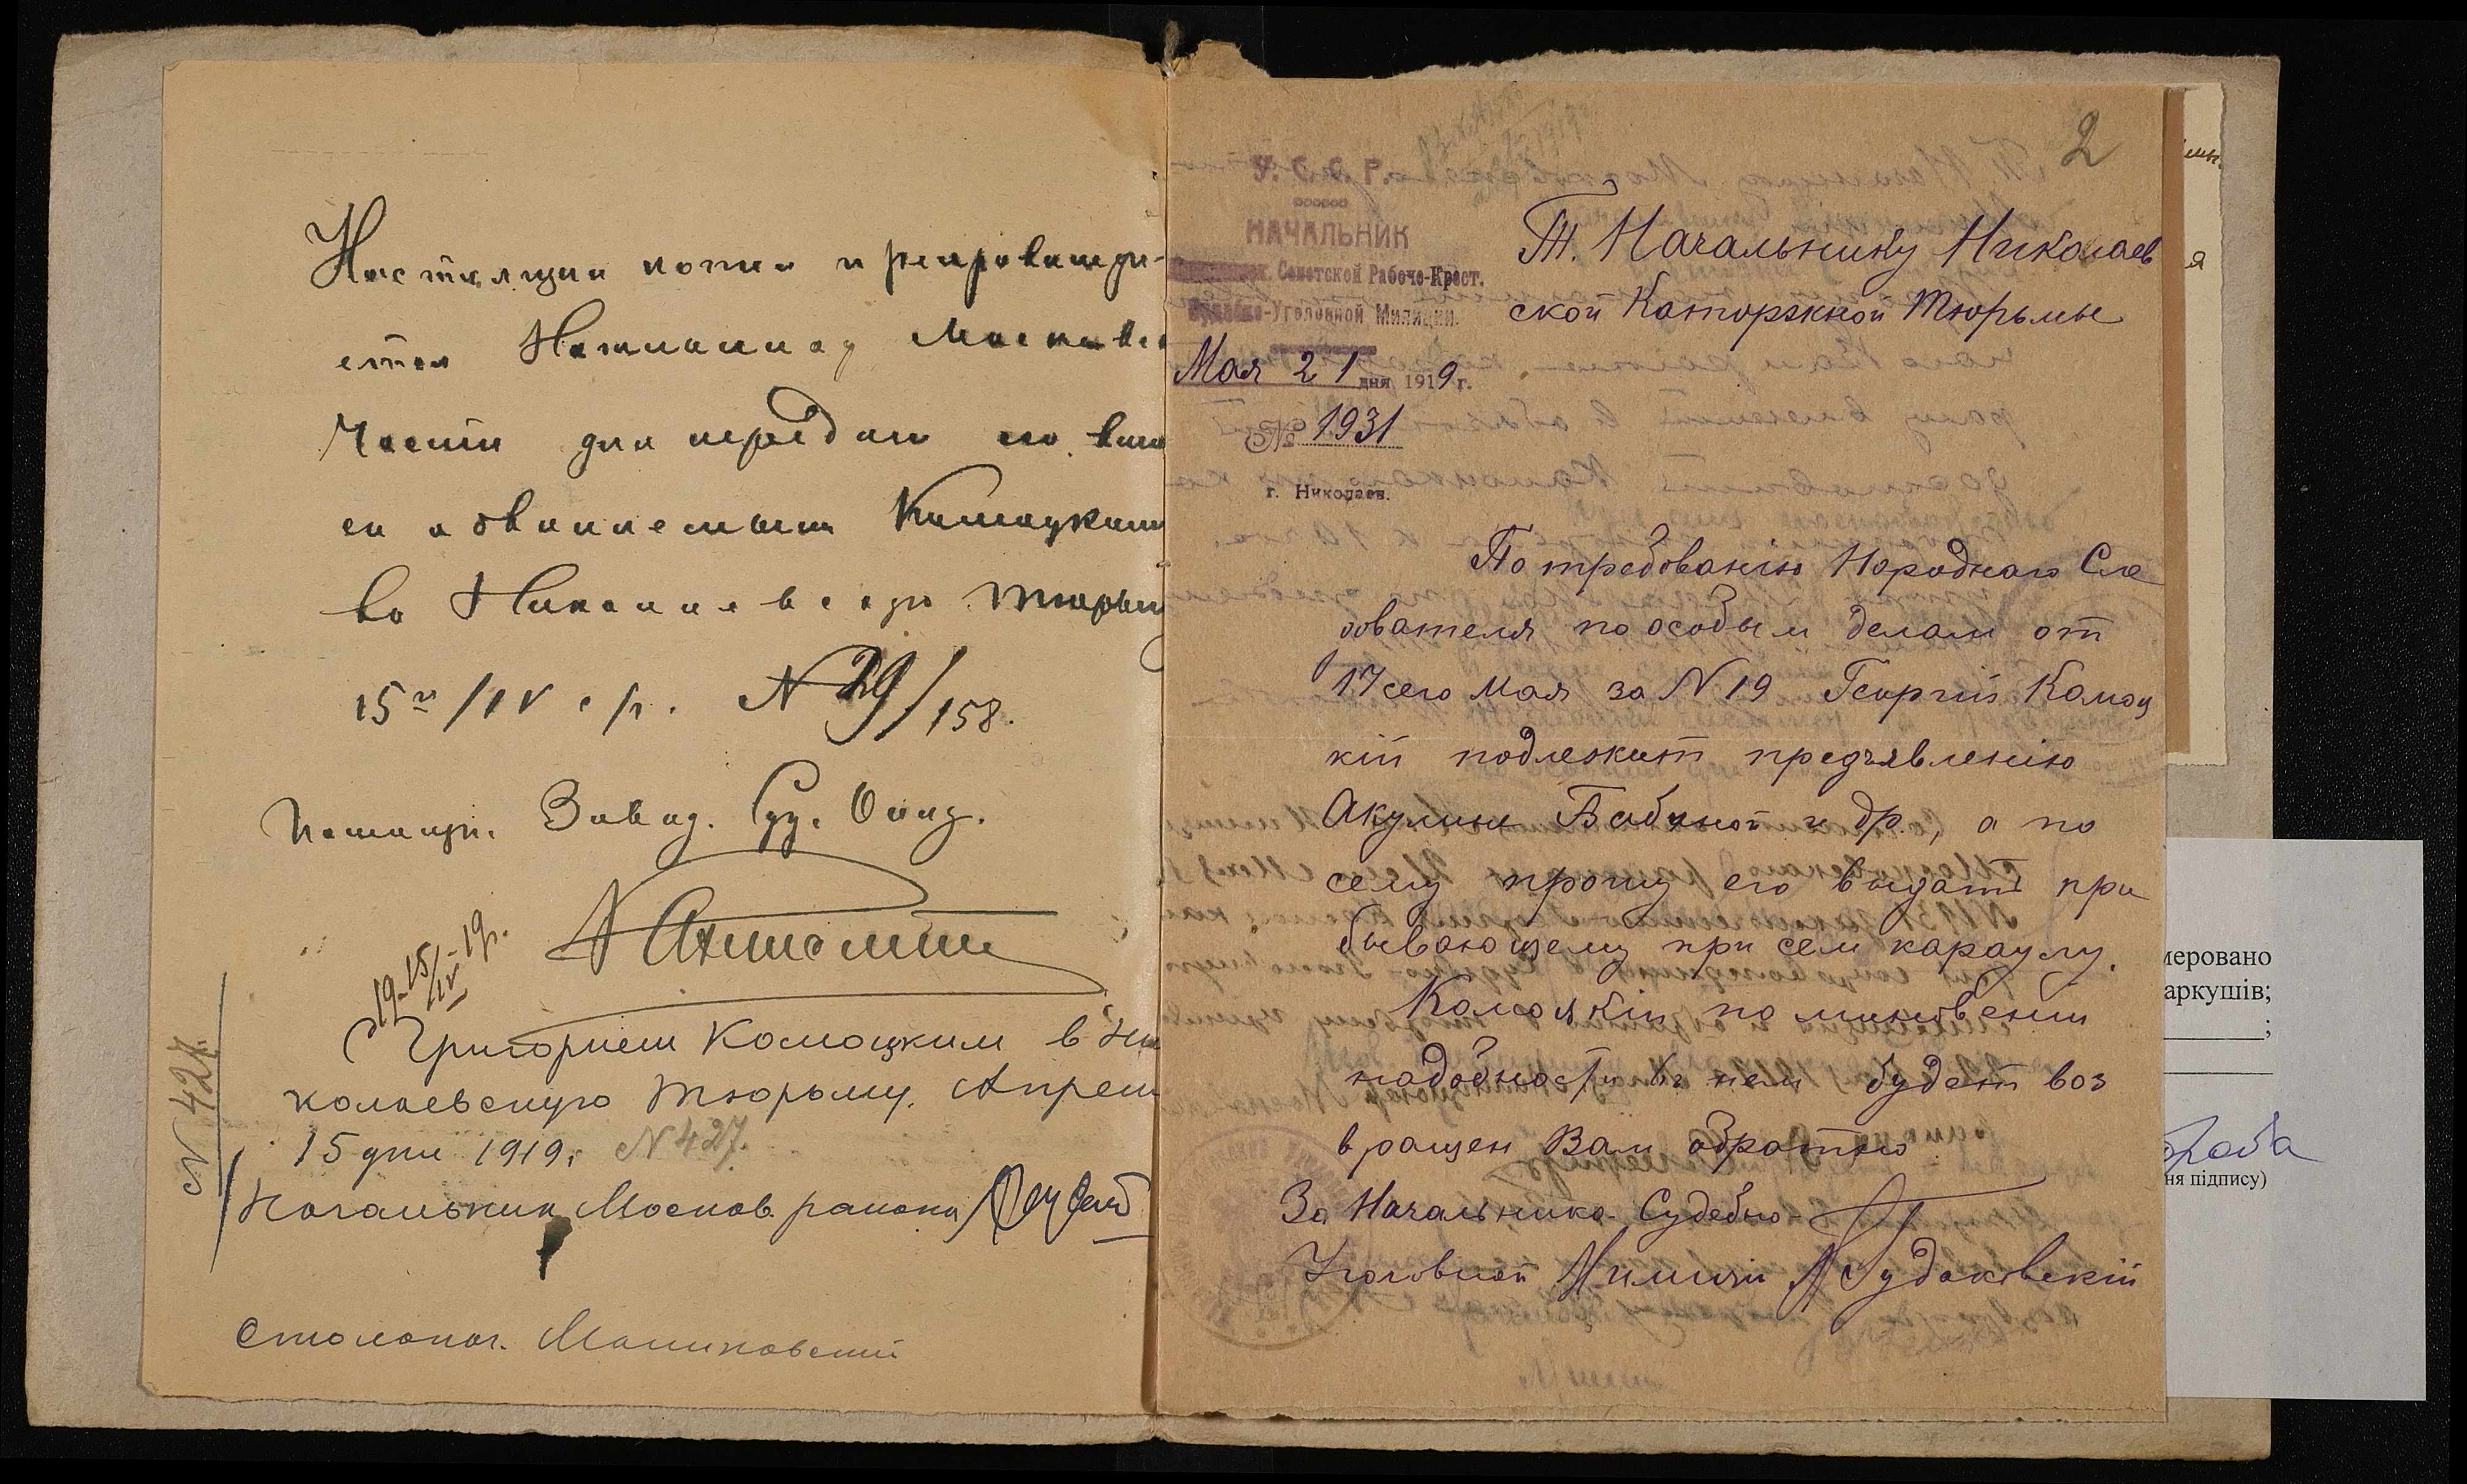 Настоящая копия препровождает
ется Начальнику Москов
части для передачи
с обвиняемым Камоцким
в Николаевскую тюрьму
15го/IV с/г. N 29/158.
Помощн. Завед. Суд.
19-15/IV-19г.
С Григорием Камоцким в Ни
колаевскую тюрьму. Апреля
15 дня 1919г. N 427.
N 427.
Начальник Москов. района
Столонач. Малиновский
2
У. С. С. Р.
НАЧАЛЬНИК
Советской Рабоче-Крест.
Судебно-Уголовной Милиции.
Мая 21 дня 1919 г.
№ 1931
г. Николаев.
Т. Начальнику Николаев
ской Каторжной тюрьмы
По требованію Народнаго Сле
дователя по особым делам от
17 сего Мая за N 19 Георгій Камоц
кій подлежит предъявленію
Акулине Бабиной и др., а по
сему прошу его выдать при
бывающему при сем караулу.
Камоцкій по миновеніи
надобности в нем будет воз
вращен Вам обратно.
За Начальника Судебно
Уголовной Милиціи Гудаковскій
меровано
аркушів;
;
ня підпису)